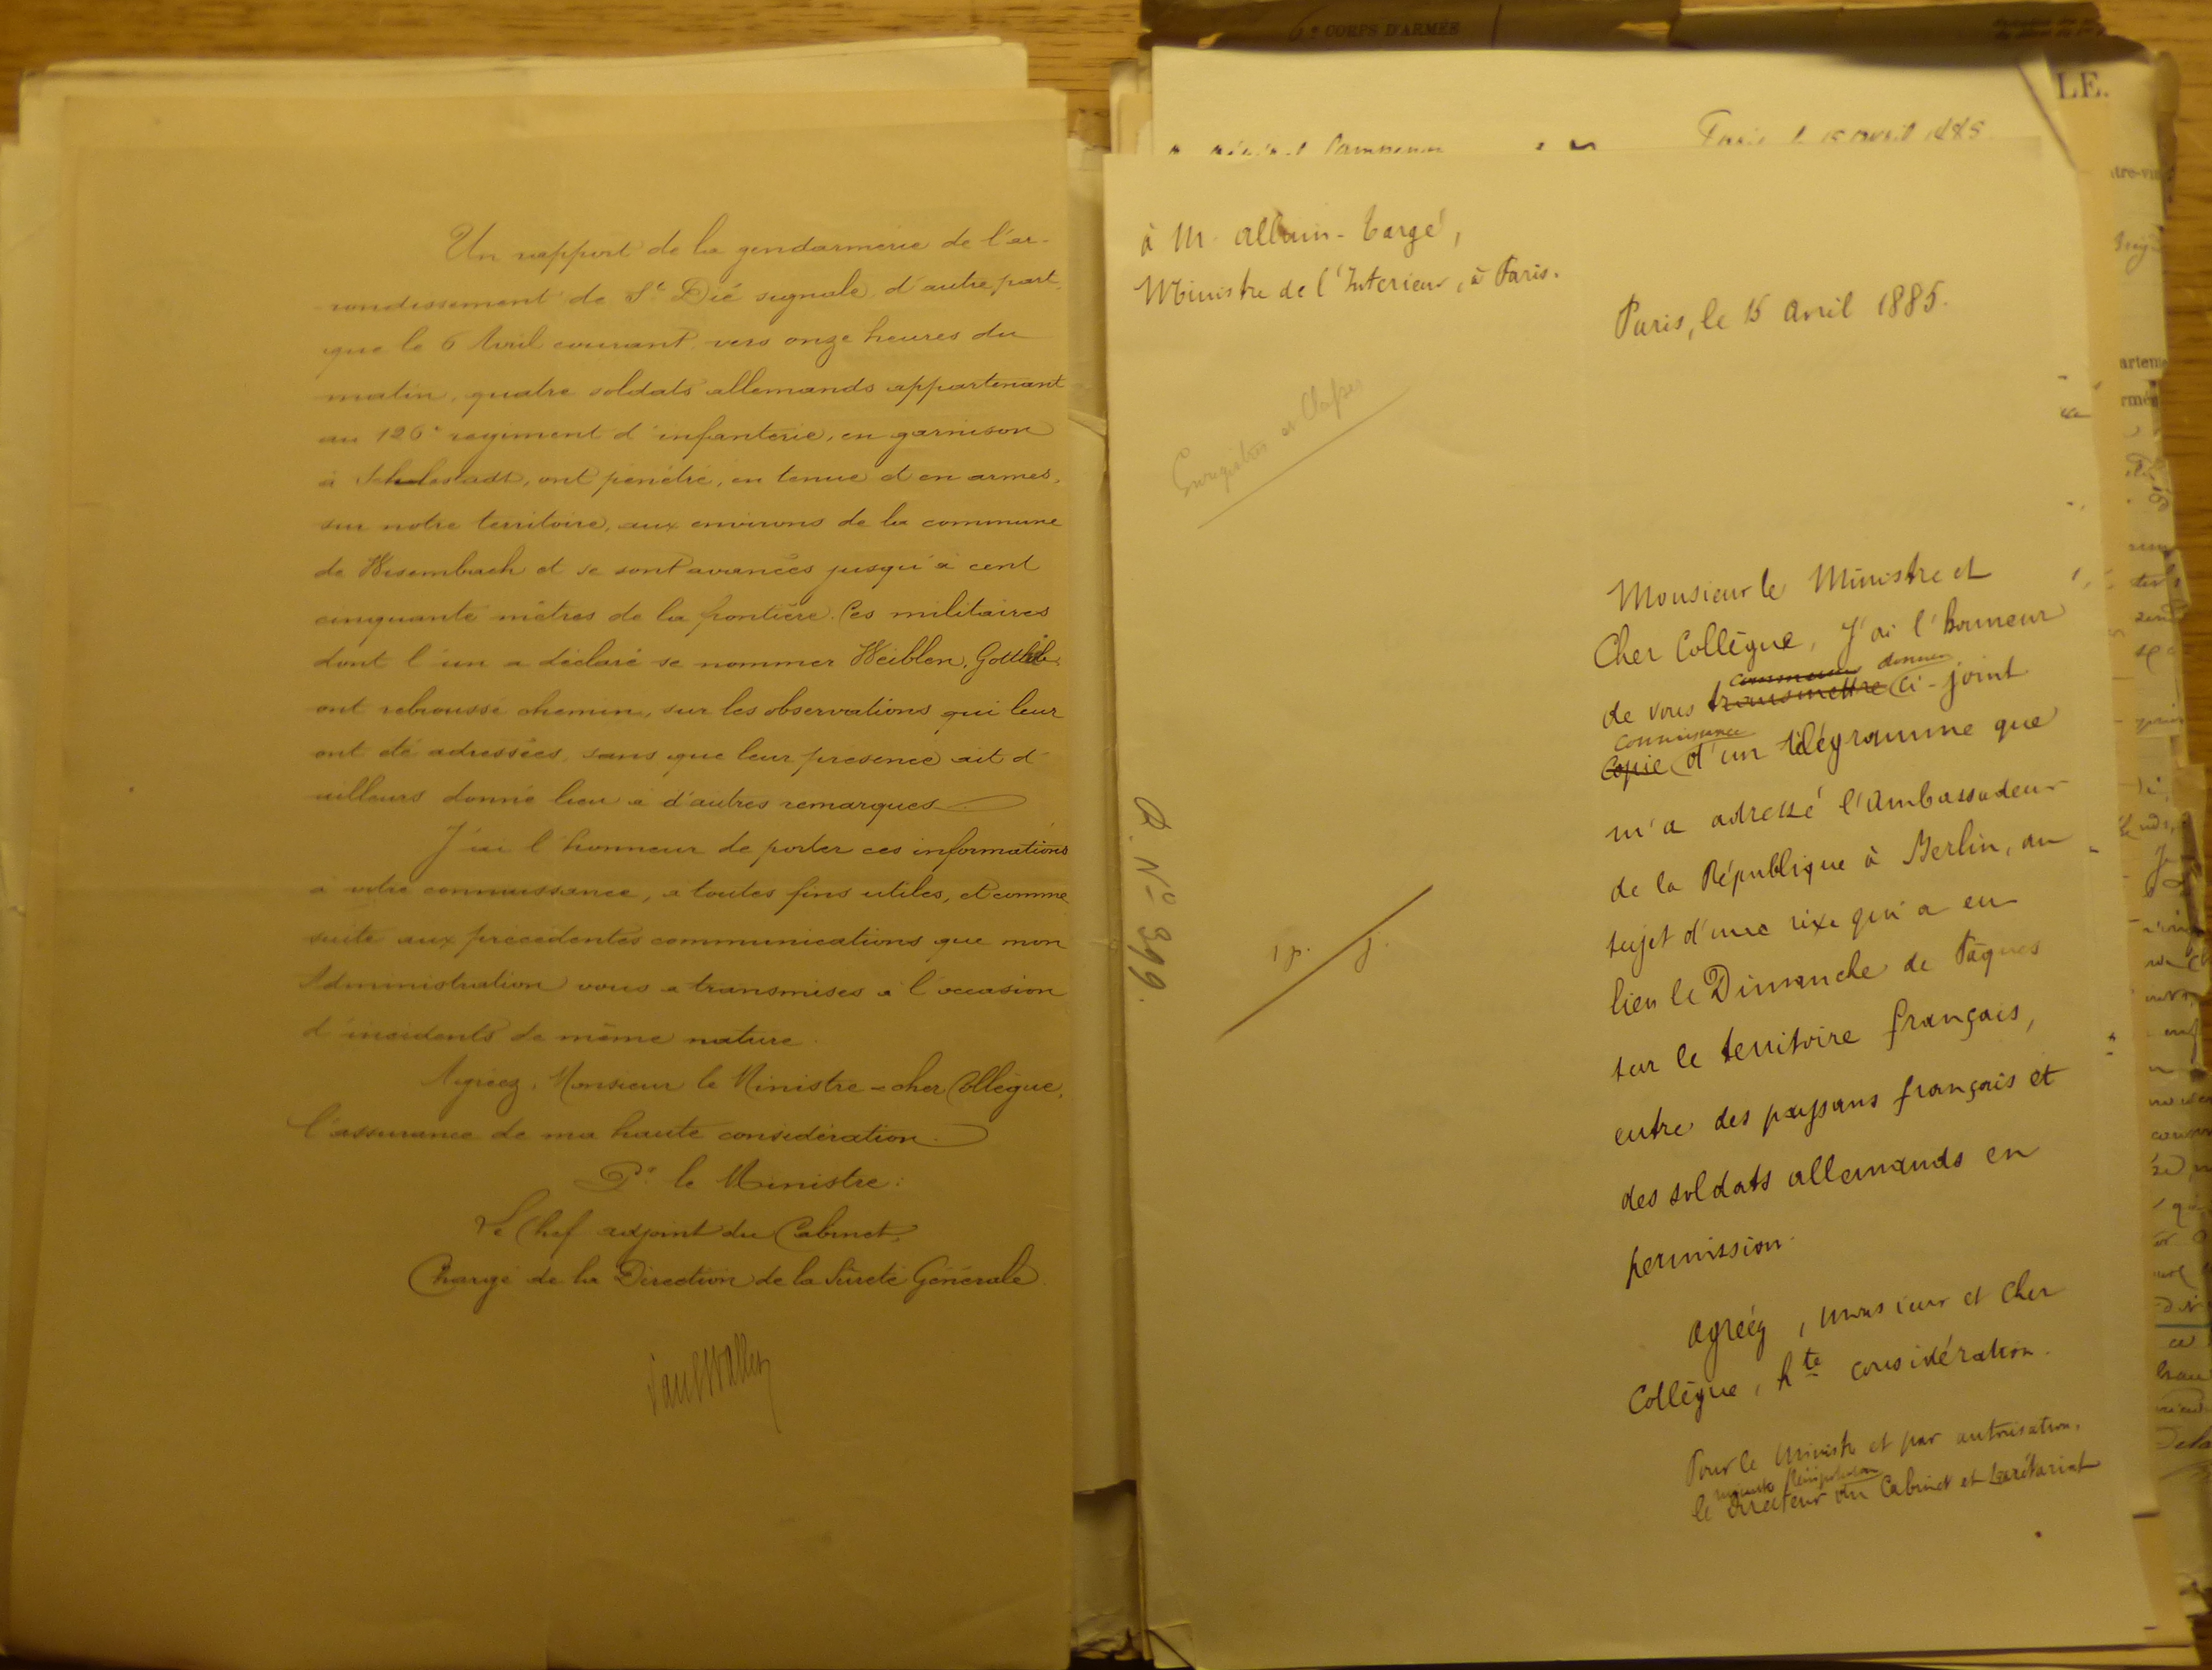 Un rapport de la gendarmerie de l'ar-
rondissement de St Dié signale, d'autre part,
que le 6 Avril courant, vers onze heures du
matin, quatre soldats allemands appartenant
au 126e régiment d'infanterie, en garnison
à Schelestadt, ont pénétré, en tenue et en armes,
sur notre territoire, aux environs de la commune
de Wisembach et se sont avancés jusqu'à cent
cinquante mètres de la frontière. Ces militaires
dont l'un a déclaré se nommer Weiblen, Gottlieb,
ont rebroussé chemin, sur les observations qui leur
ont été adressées, sans que leur présence ait d'
ailleurs donné lieu à d'autres remarques.
J'ai l'honneur de porter ces informations
à votre connaissance, à toutes fins utiles, et comme
suite aux précédentes communications que mon
Administration vous a transmises à l'occasion
d'incidents de même nature.
Agréez, Monsieur le Ministre - cher Collègue,
l'assurance de ma haute considération.
Pr le Ministre :
Le Chef adjoint du Cabinet,
Chargé de la Direction de la Sûreté Générale.
6e CORPS D'ARMÉE
LE.
Paris le 15 avril 1885
à M. Allain-Targé,
Ministre de l'Interieur, à Paris.
Paris, le 15 Avril 1885.
Enregistrer et Classer
D. No 399.
1 p. j.
Monsieur le Ministre et
Cher Collègue, J'ai l'honneur
donner
de vous transmettre ci-joint
connaissance
copie d'un télégramme que
m'a adressé l'Ambassadeur
de la République à Berlin, au
sujet d'une rixe qui a eu
lieu le Dimanche de Pâques
sur le territoire français,
entre des paysans français et
des soldats allemands en
permission.
Agréez, Monsieur et Cher
Collègue, hte considération.
Pour le Ministre et par autorisation,
le Directeur du Cabinet et Secrétariat